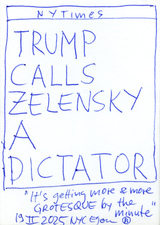 NYTimes
TRUMP
CALLS
ZELENSKY
A
DICTATOR
"It's getting more & more
GROTESQUE by the
minute"
19 II 2025 NYC